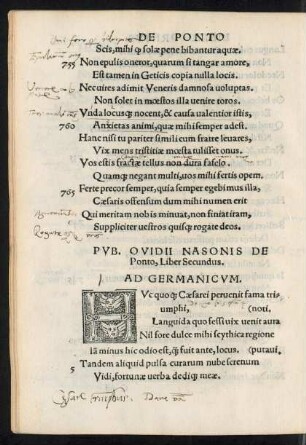 DE PONTO
Scis, mihi q̃ solæ pene bibantur aquæ.
755 Non epulis oneror, quarum si tangar amore,
Est tamen in Geticis copia nulla locis.
Nec uires adimit Veneris damnosa uoluptas.
Non solet in mœstos illa uenire toros.
Vnda locusq; nocent, & causa ualentior istis,
760 Anxietas animi, quæ mihi semper adest.
Hanc nisi tu pariter simili cum fratre leuares,
Vix mens tristitiæ mœsta tulisset onus.
Vos estis fractæ tellus non dura faselo.
Quamq; negant multi, uos mihi fertis opem.
765 Ferte precor semper, quia semper egebimus illa,
Cæsaris offensum dum mihi numen erit
Qui meritam nobis minuat, non finiat iram,
Suppliciter uestros quisq; rogate deos.
PVB. OVIDII NASONIS DE
Ponto, Liber Secundus.
AD GERMANICVM.
HVc quoq; Cæsarei peruenit fama tri
umphi, (noti.
Languida quo fessi uix uenit aura
Nil fore dulce mihi scythica regione
Iã minus hic odio est, q̃ fuit ante, locus. (putaui,
5 Tandem aliquid pulsa curarum nube serenum
Vidi, fortunæ uerba dediq; meæ.